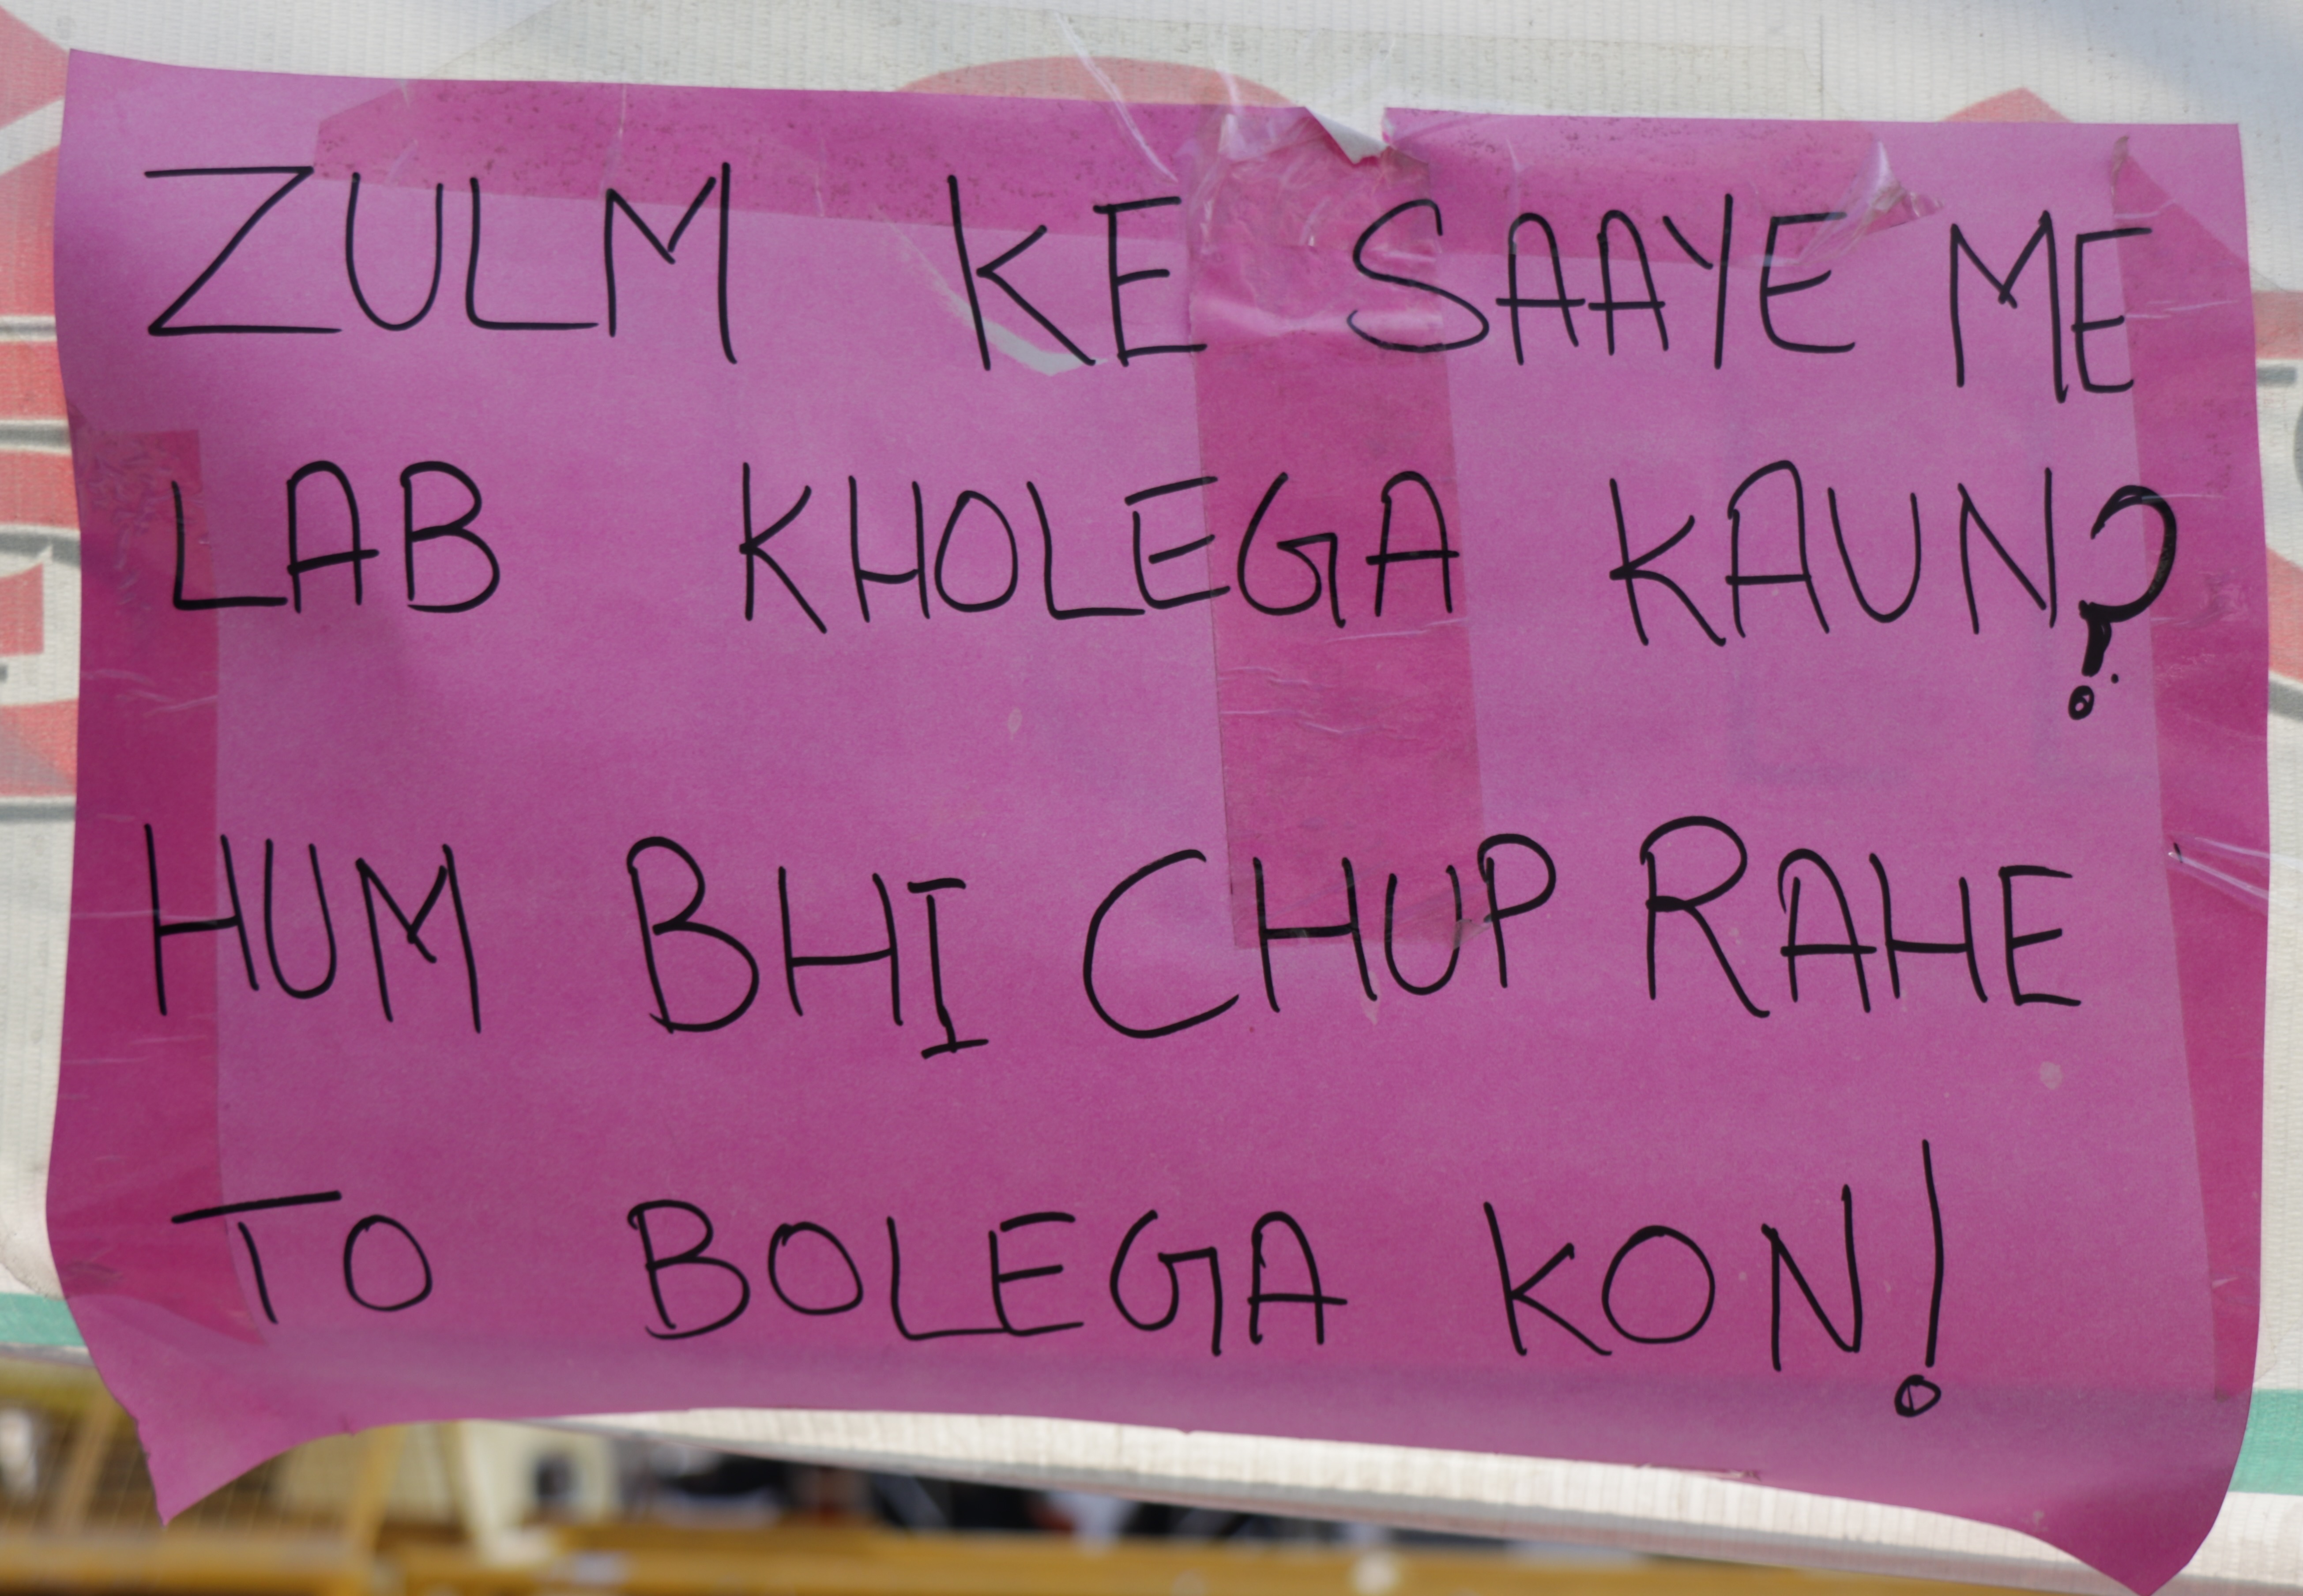 ZULM KE SAAYE ME
LAB KHOLEGA KAUN?
HUM BHI CHUP RAHE
TO BOLEGA KON!